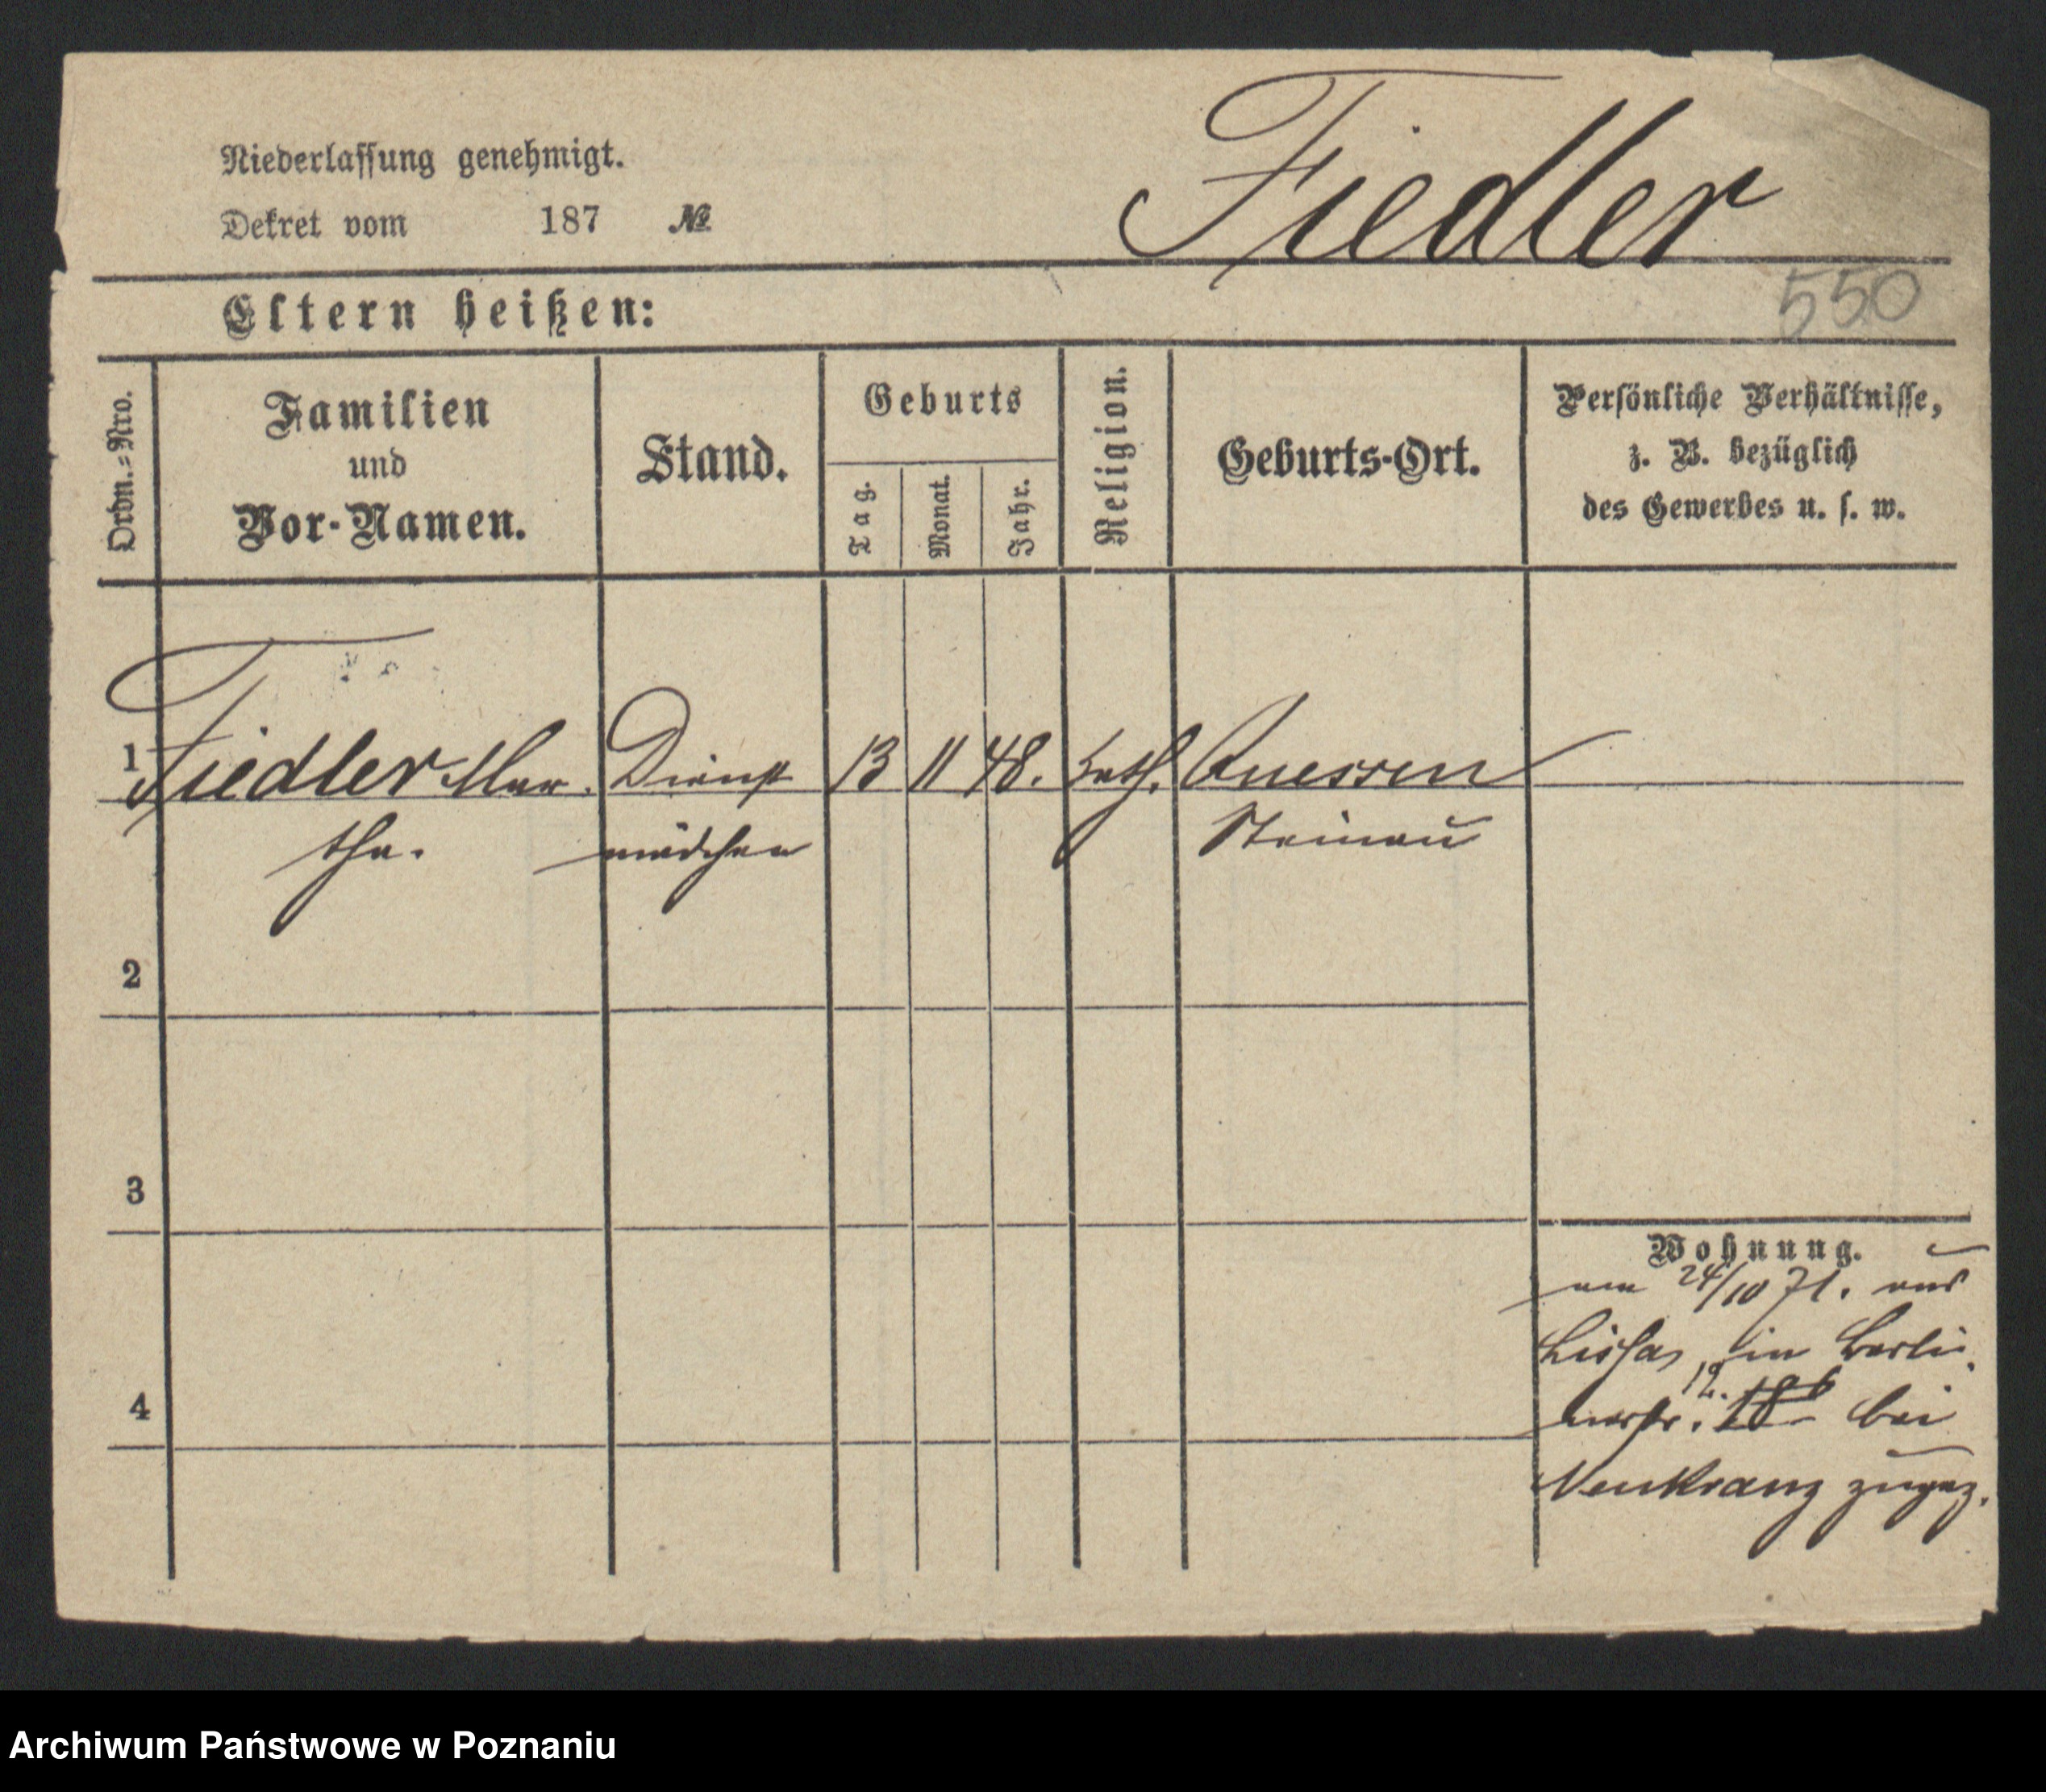 Niederlassung genehmigt.
Dekret vom 187 №
Fiedler
550
Eltern heißen:
Ordn.-Nro.
Familien
und
Vor-Namen.
Stand.
Geburts
Tag.
Monat.
Jahr.
Religion.
Geburts-Ort.
Persönliche Verhältnisse,
z. B. bezüglich
des Gewerbes u. s. w.
1 Fiedler Mar. Dienst 13 11 48. kath.
tha. mädchen Steinau
2
3
4
Wohnung.
am 24/10 71. aus
Lissa, in Berli
nerstr. 12. bei
Neukranz zugez.
Archiwum Państwowe w Poznaniu